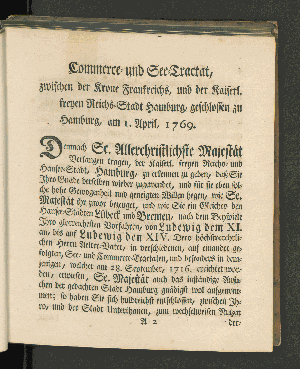 Commerce- und See-Tractat,
zwischen der Krone Frankreichs, und der Kaiserl.
freyen Reichs-Stadt Hamburg, geschlossen zu
Hamburg, am 1. April, 1769.
Demnach Se. Allerchristlichste Majestät
Verlangen tragen, der Kaiserl. freyen Reichs- und
Hansee-Stadt, Hamburg, zu erkennen zu geben, daß Sie
Ihro Gnade derselben wieder zugewendet, und für sie eben sol-
che hohe Gewogenheit und geneigten Willen hegen, wie Se.
Majestät ihr zuvor bezeuget, und wie Sie ein Gleiches den
Hansee-Städten Lübeck und Bremen, nach dem Beyspiele
Dero glorwürdigsten Vorfahren, von Ludewig dem XI.
an, bis auf Ludewig den XIV. Dero höchstverehrli-
chen Herrn Aelter-Vater, in verschiedenen, auf einander ge-
folgten, See- und Commerce-Tractaten, und besonders in dem-
jenigen, welcher am 28. September, 1716. errichtet wor-
den, erwiesen, Se. Majestät auch das inständige Ansu-
chen der gedachten Stadt Hamburg gnädigst wol aufgenom-
men; so haben Sie sich huldreichst entschlossen, zwischen Ih-
ro, und der Stadt Unterthanen, zum wechselweisen Nutzen
A 2 der-